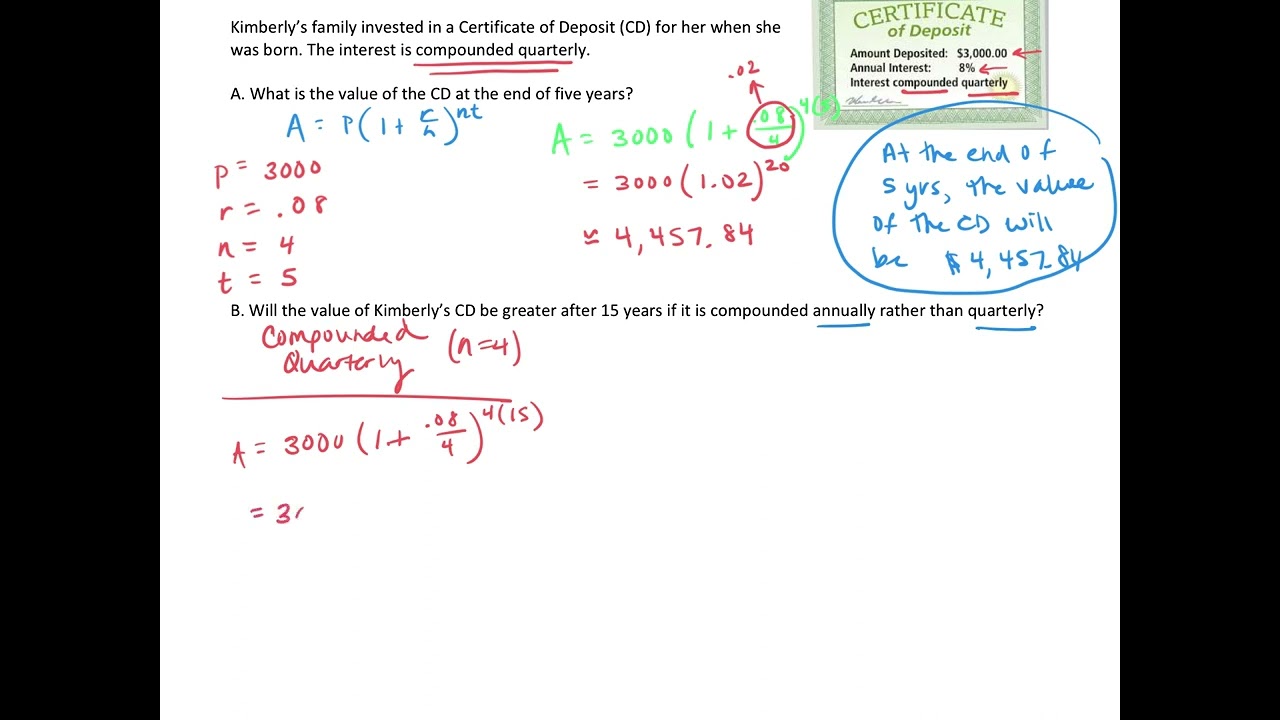 Kimberly's family invested in a Certificate of Deposit (CD) for her when she
was born. The interest is compounded quarterly.
CERTIFICATE
of Deposit
Amount Deposited: $3,000.00
Annual Interest: 8%
Interest compounded quarterly
A. What is the value of the CD at the end of five years?
A = P(1 + r/n)^nt
P = 3000
r = .08
n = 4
t = 5
.02
A = 3000 (1 + .08/4)^4(5)
= 3000 (1.02)^20
≈ 4,457.84
At the end of
5 yrs, the value
of the CD will
be $4,457.84
B. Will the value of Kimberly's CD be greater after 15 years if it is compounded annually rather than quarterly?
Compounded
Quarterly (n=4)
A = 3000 (1 + .08/4)^4(15)
= 3